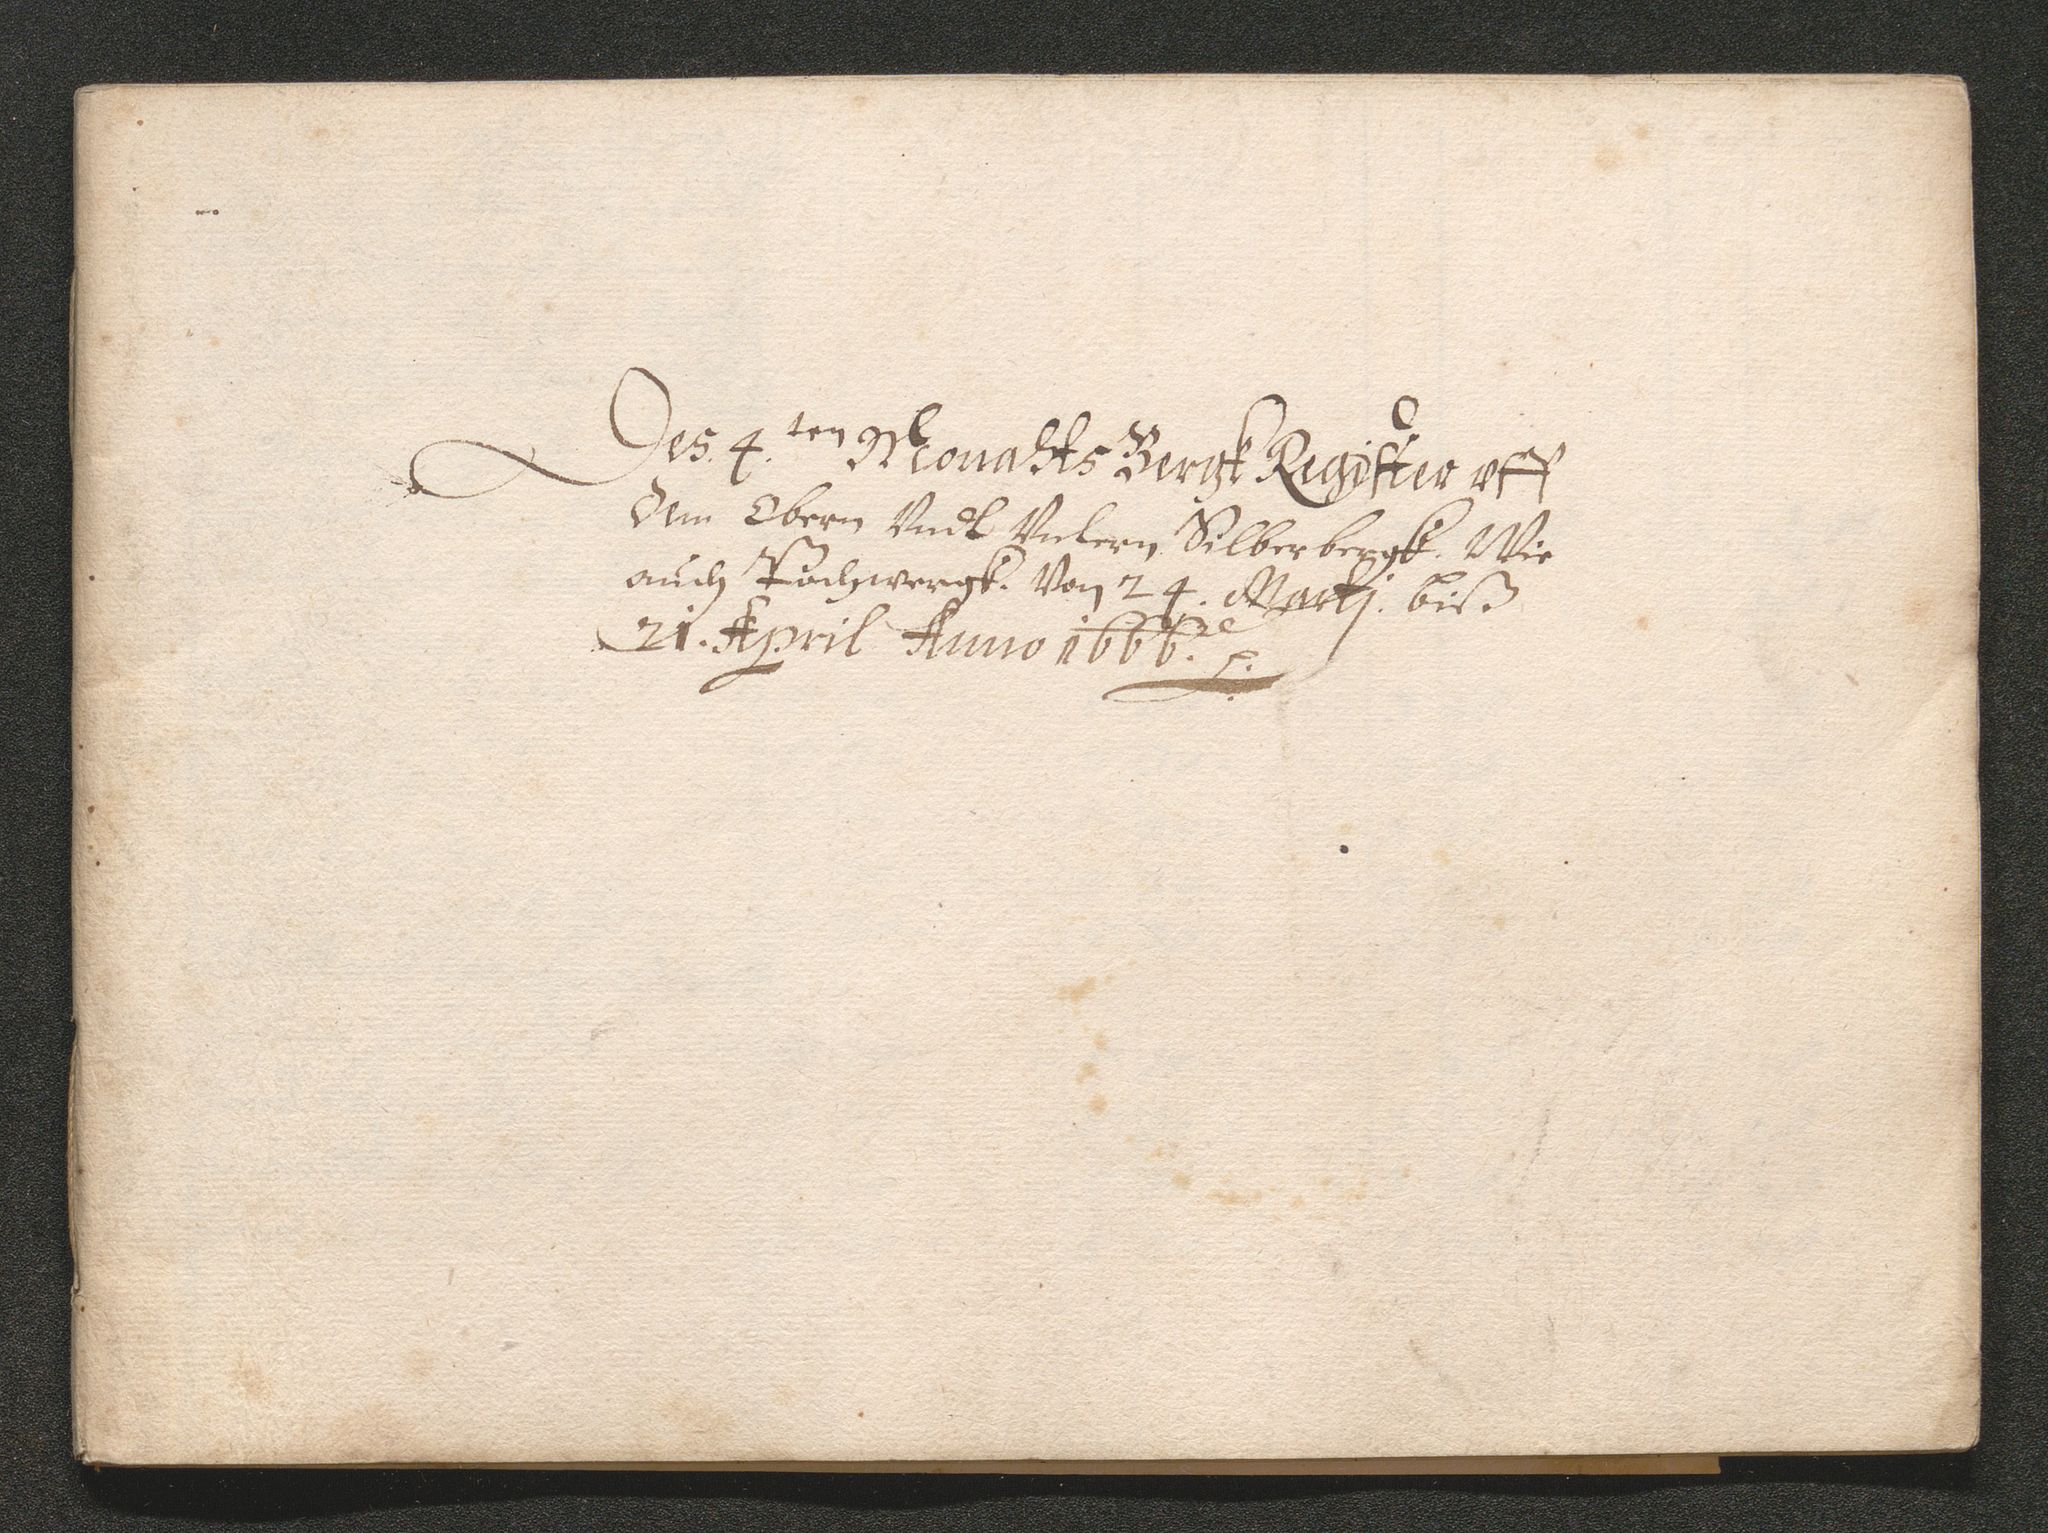 Des. 4.ten Monahts Bergk Register vff
dem Obern Vndt Vntern Silberbergk. Wie
auch Pochwergk. Von 24. Martj. biß
21. April Anno 1666.